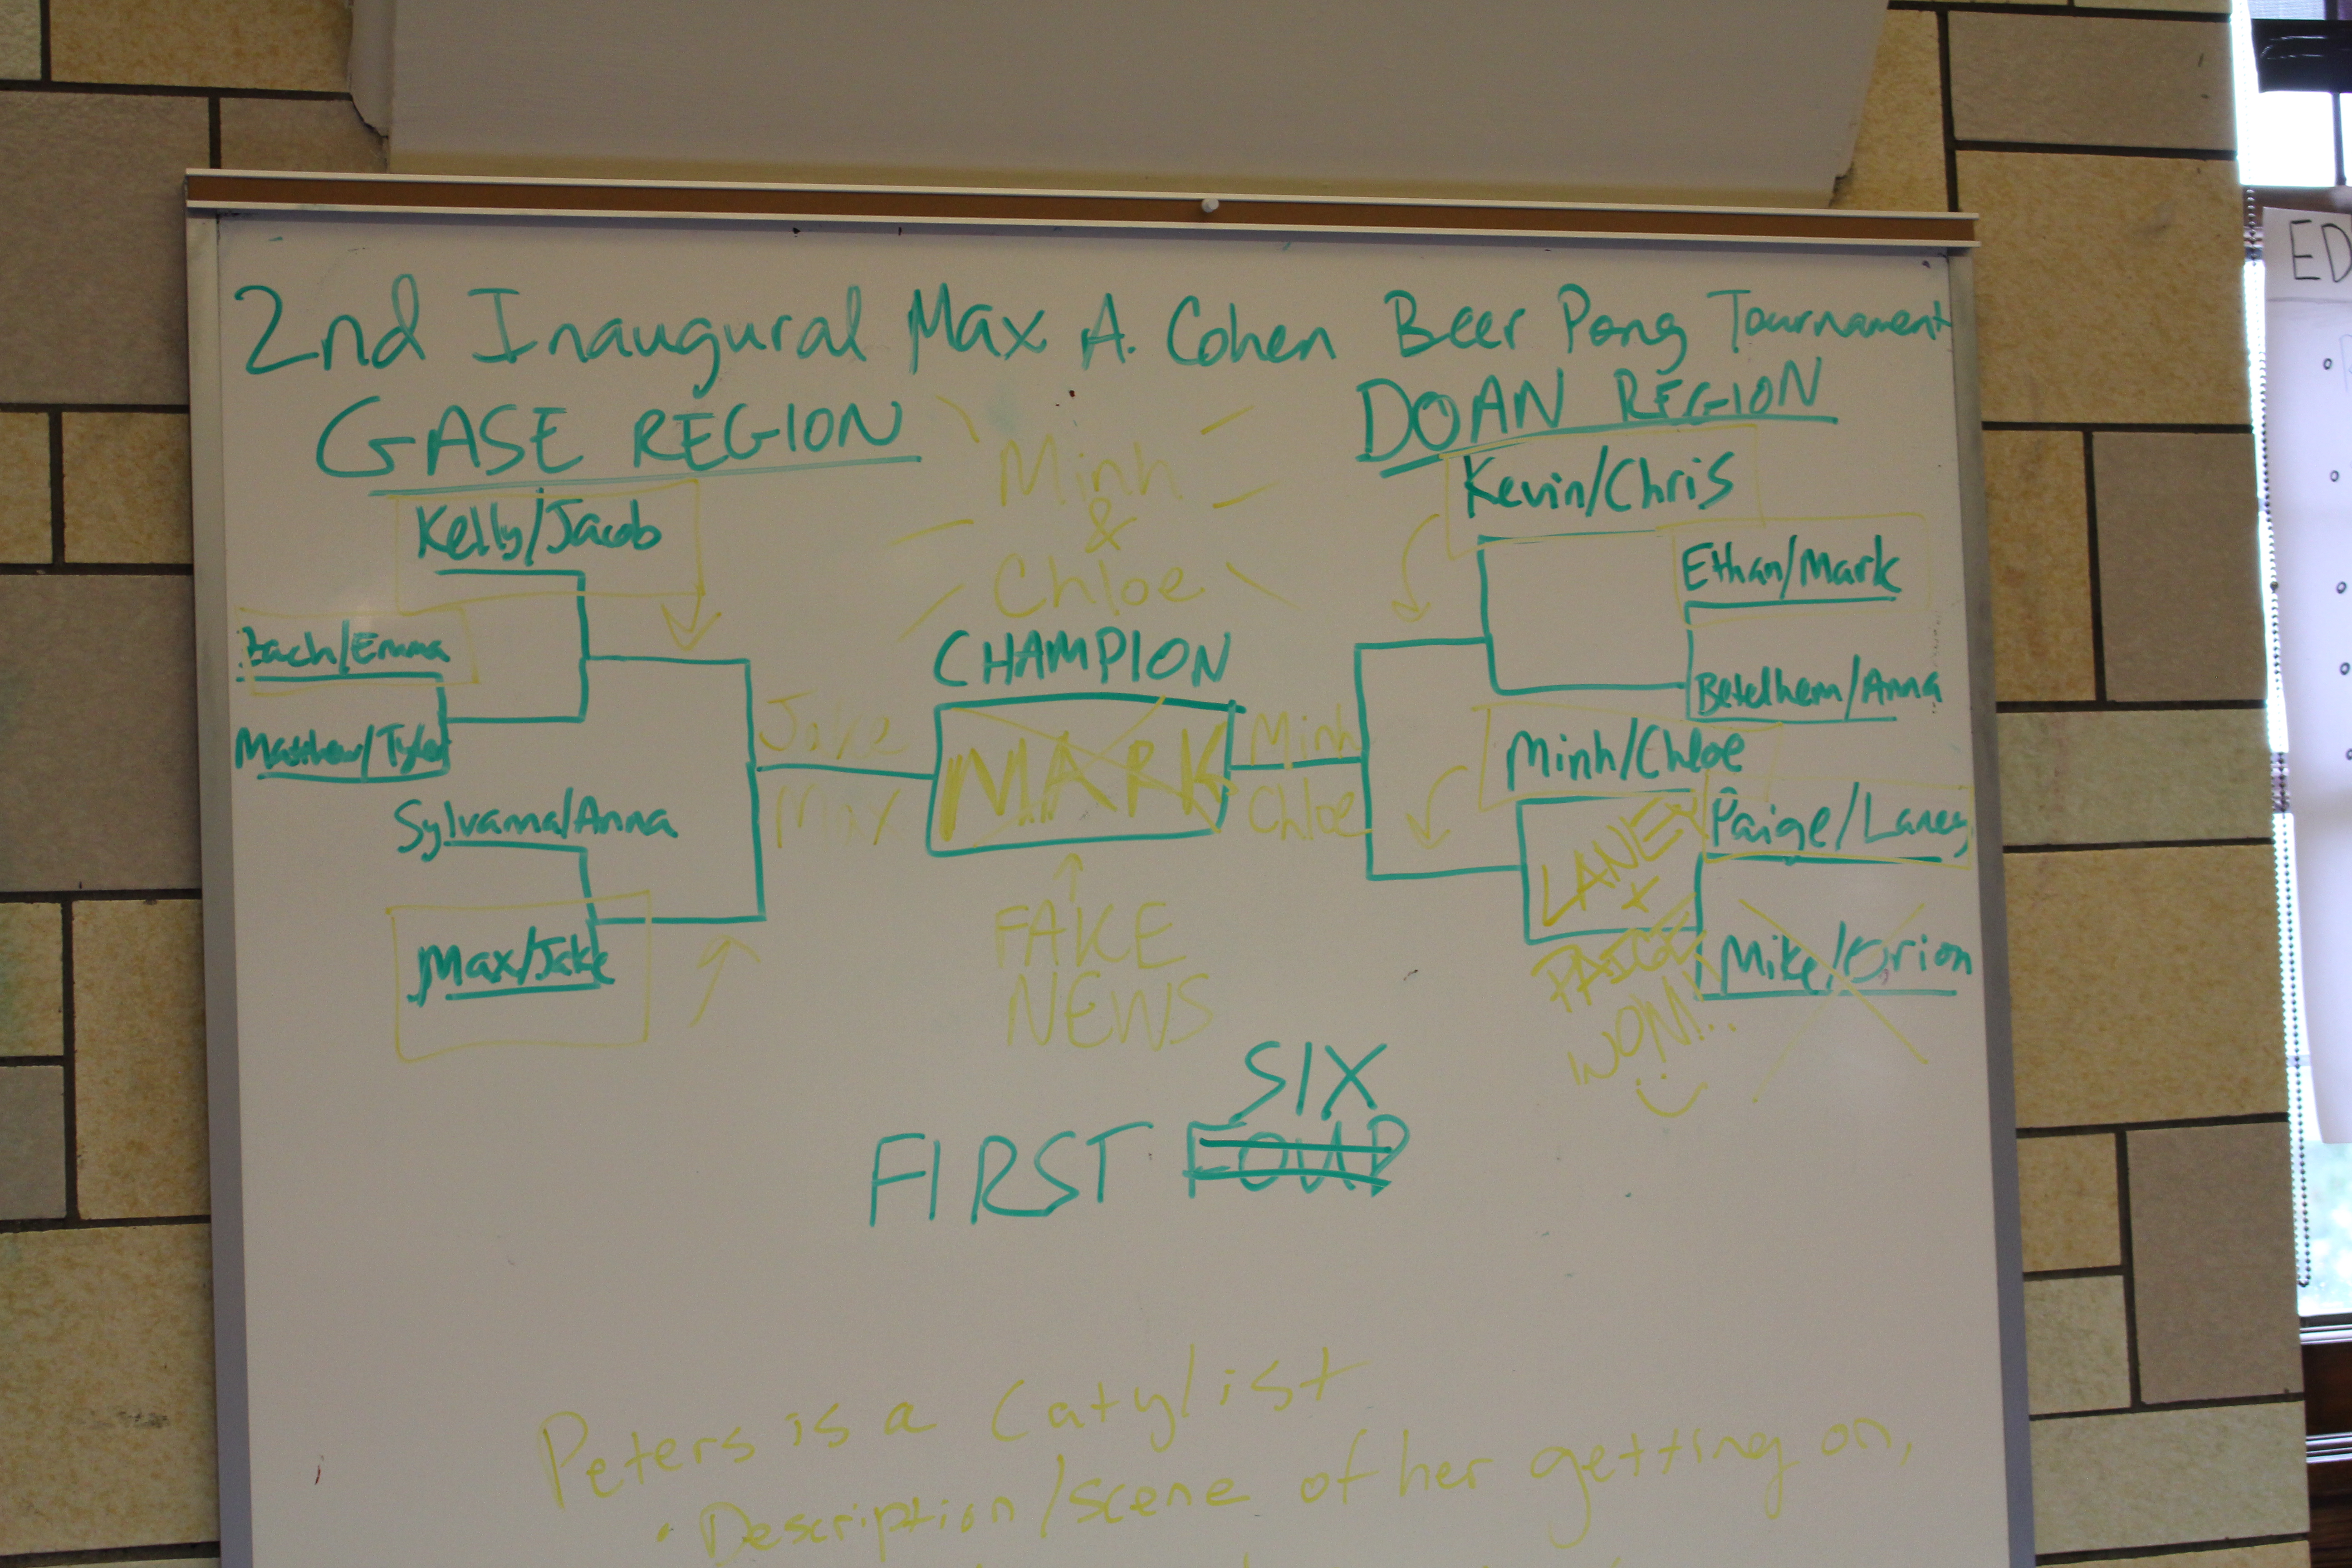 2nd Inaugural Max A. Cohen Beer Pong Tournament
GASE REGION
DOAN REGION
Kelly/Jacob
Zach/Emma
Matthew/Tyler
Sylvanna/Anna
Max/Jake
Jake
Max
Minh
&
Chloe
CHAMPION
MARK
FAKE
NEWS
Minh
Chloe
Kevin/Chris
Ethan/Mark
Betelhem/Anna
Minh/Chloe
Paige/Laney
Mike/Orion
LANEY
+
PAIGE
WON!..
SIX
FIRST FOUR
Peters is a Catylist
• Description/scene of her getting on,
ED